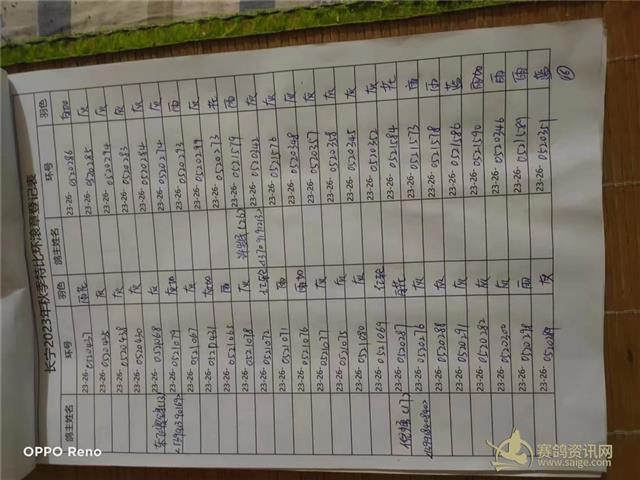 长宁2023年秋季特比环滚草登记表
鸽主姓名 环号 羽色 鸽主姓名 环号 羽色
23-26-0520437 雨花 23-26-0520286
23-26-0520435 灰 23-26-0520285 灰
23-26-0520438 灰 23-26-0520294 灰
23-26-0520430 灰 23-26-0520283 灰
23-26-0521068 灰 23-26-0520284 灰
23-26-0521079 灰加 23-26-0520274 灰
23-26-0521067 灰 23-26-0520293 雨
23-26- 灰加 23-26-0520299 灰
23-26-0521065 雨 23-26-0520273 花
23-26-0521078 灰 23-26-0521579 雨
23-26-0521072 红轮 23-26-0520342 灰
23-26-0521071 雨 23-26-0521576 灰
23-26-0521076 雨加 23-26-0520348 灰
23-26-0521077 灰 23-26-0520357 灰
23-26-0521075 灰 23-26-0520358 灰
23-26-0521080 灰 23-26-0520345 灰
23-26-0521069 红轮 23-26-0520352 灰
倪强(17) 23-26-0520287 23-26-0521584 花
23-26-0520276 灰 23-26-0521573 雨
23-26-0520288 灰 23-26-0521578 雨
23-26-0520291 灰 23-26-0521586 蓝
23-26-0520282 灰 23-26-0521590 雨加
23-26-0520200 灰 23-26-0520346 雨
23-26-0520298 雨 23-26-0521589 雨
23-26-0520289 灰 23-26-0520351 蓝
OPPO Reno
赛鸽资讯网
www.saige.com